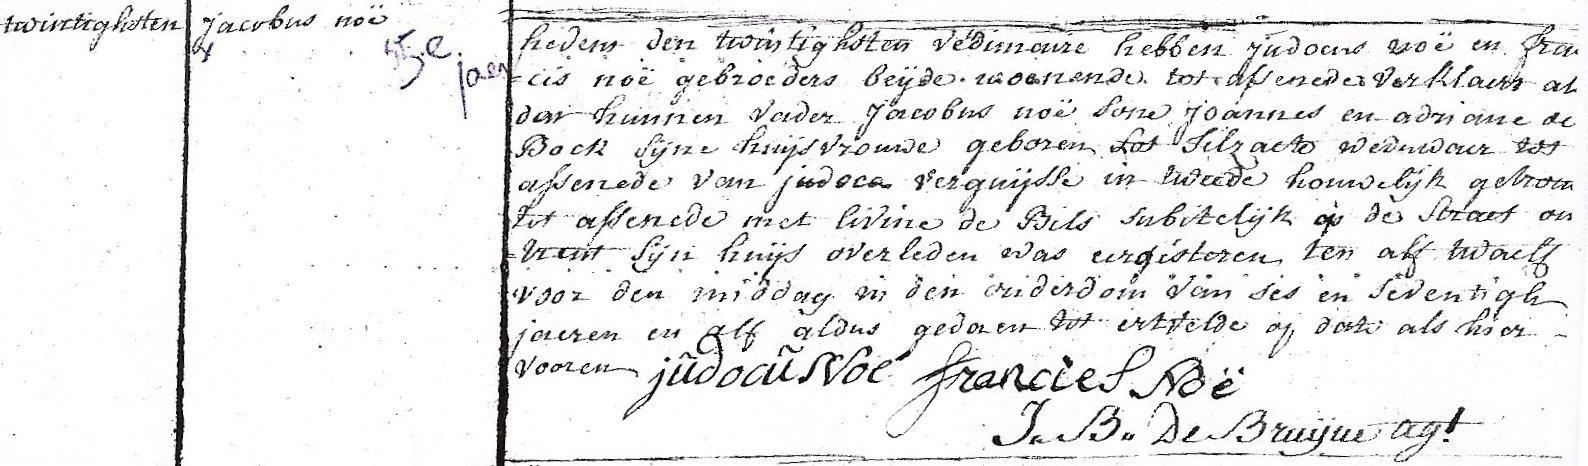 twintighsten
Jacobus noë
5e.
jaer
hedens den twintighsten vedimaire hebben Judocus noë en fran
-cis noë gebroeders beijde woenende tot assenede verklaert al
dar hunnen vader Jacobus noë sone Joannes en adriane de
Bock sijne huijsvrouwe geboren tot Silzaete weduwaer tot
assenede van judoca verguijsse in tweede houwelijk getrou
tot assenede met livine de Bils subitelijk op de straet on
-trent sijn huijs overleden was eergisteren ten alf twaelf
voor den middag in den ouderdom van ses en seventigh
jaeren en alf aldus gedaen tot ertvelde op date als hier
vooren Judocũ Noë francies Noë
J. B. De Bruijne agt